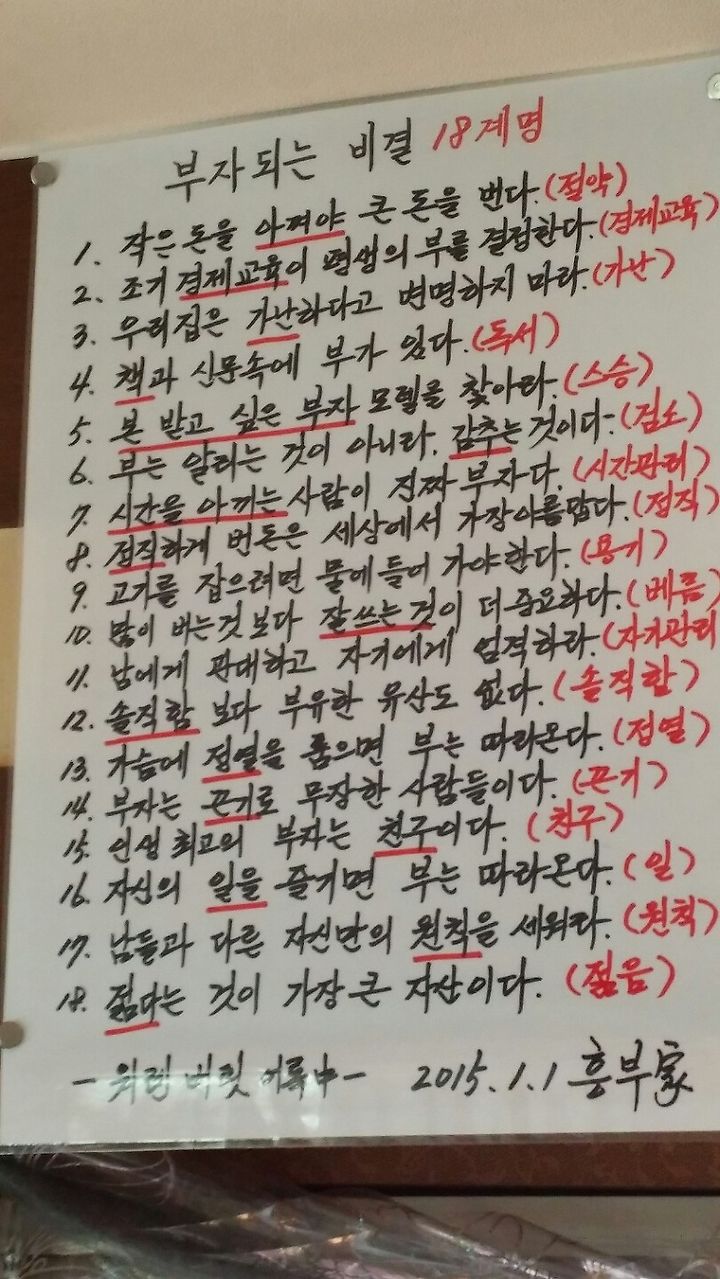 부자되는 비결 18계명
1. 작은 돈을 아껴야 큰 돈을 번다. (절약)
2. 조기 경제교육이 평생의 부를 결정한다. (경제교육)
3. 우리집은 가난하다고 변명하지 마라. (가난)
4. 책과 신문속에 부가 있다. (독서)
5. 본 받고 싶은 부자 모델을 찾아라. (스승)
6. 부는 알리는 것이 아니라, 감추는 것이다. (검소)
7. 시간을 아끼는 사람이 진짜 부자다. (시간관리)
8. 정직하게 번돈은 세상에서 가장아름답다. (정직)
9. 고기를 잡으려면 물에 들어 가야한다. (용기)
10. 많이 버는것 보다 잘쓰는 것이 더 중요하다. (베품)
11. 남에게 관대하고 자기에게 엄격하라. (자기관리
12. 솔직함 보다 부유한 유산도 없다. (솔직함)
13. 가슴에 정열을 품으면 부는 따라온다. (정열)
14. 부자는 끈기로 무장한 사람들이다. (끈기)
15. 인생 최고의 부자는 친구이다. (친구)
16. 자신의 일을 즐기면 부는 따라온다. (일)
17. 남들과 다른 자신만의 원칙을 세워라. (원칙)
18. 젊다는 것이 가장 큰 자산이다. (젊음)
- 워렌 버핏 어록中 - 2015.1.1 흥부家